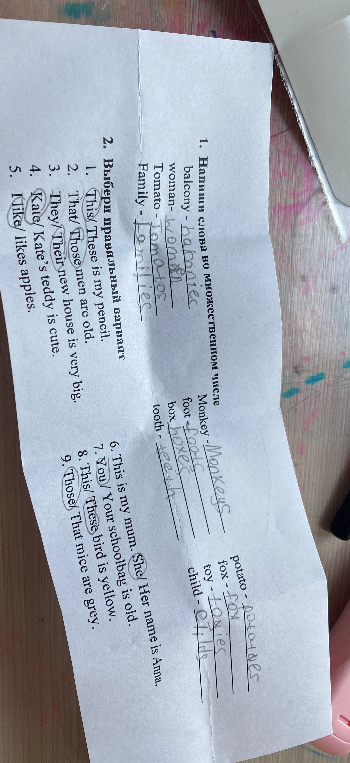 1. Напиши слова во множественном числе
balcony - balconies Monkey - Monkeys potato - potatoes
woman- women foot - fox - fox
Tomato - Tomatos box - boxes toy - toyies
Family - families tooth - teeth child - childs
2. Выбери правильный вариант
1. This/ These is my pencil.
2. That/ Those men are old.
3. They/ Their new house is very big.
4. Kate/ Kate's teddy is cute.
5. I like/ likes apples.
6. This is my mum. She/ Her name is Anna.
7. You/ Your schoolbag is old.
8. This/ These bird is yellow.
9. Those/ That mice are grey.